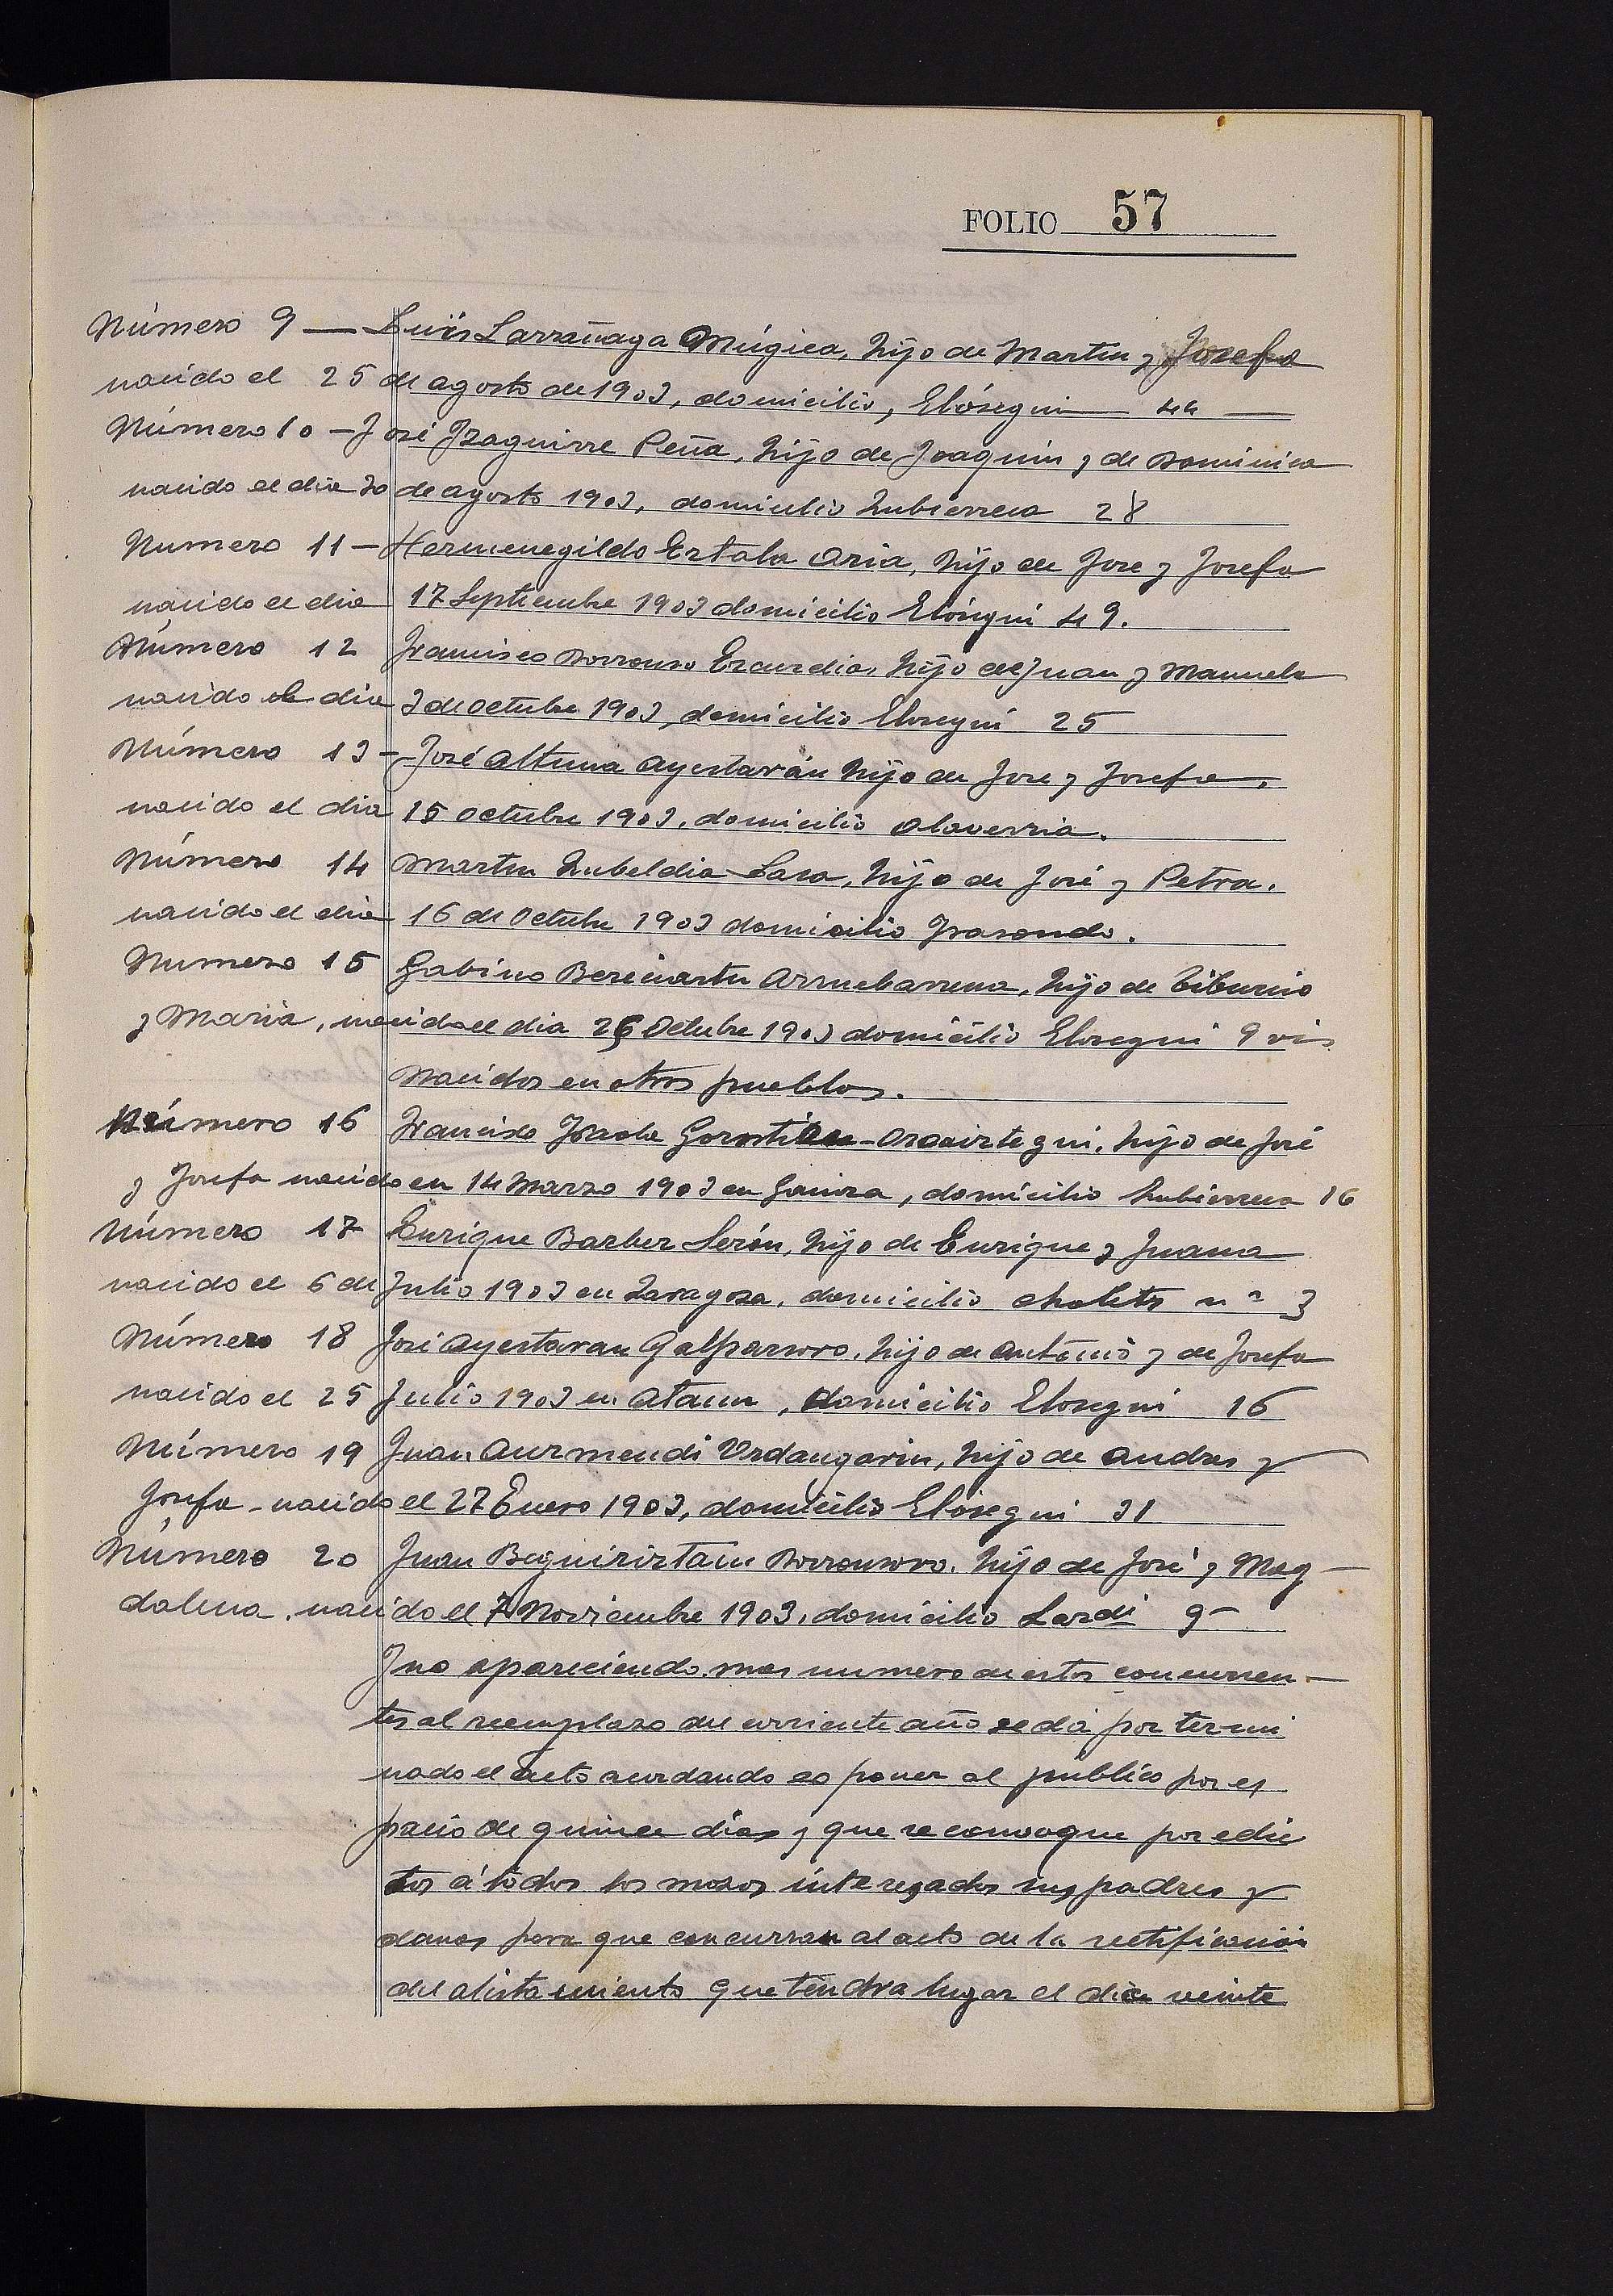 FOLIO 57
Número 9 — Luis Larrañaga Múgica, hijo de Martin y Josefa
nacido el 25 de agosto de 1903, domicilio, Elósegui — 44 —
Número 10 – José Izaguirre Peña, hijo de Joaquin y de Dominica
nacido el dia 30 de agosto 1903, domicilio Zubierreca 28
Numero 11 – Hermenegildo Estala Aria, hijo de Jose y Josefa
nacido el dia 17 Septiembre 1903 domicilio Elósegui 49.
Número 12 Francisco Ezcurdia, hijo de Juan y Manuela
nacido el dia 3 de Octubre 1903, domicilio Elosegui 25
Número 13 – José Altuna Ayestarán hijo de Jose y Josefa,
nacido el dia 15 octubre 1903, domicilio Olaverria.
Número 14 Martin Zubeldia Lasa, hijo de José y Petra.
nacido el dia 16 de Octubre 1903 domicilio Yrasondo.
Numero 15 Gabino Bereciartu Arruebarrena, hijo de Tiburcio
y Maria, nacido el dia 26 Octubre 1903 domicilio Elosegui 9
Nacidos en otros pueblos.
Número 16 Francisco, hijo de José
y Josefa nacido en 14 Marzo 1903 en Gainza, domicilio Zubierreca 16
Número 17 Enrique Barber Serón, hijo de Enrique y Juana
nacido el 6 de Julio 1903 en Zaragoza, domicilio chalets nº 3
Número 18 José Ayestaran Galparsoro, hijo de Antonio y de Josefa
nacido el 25 Julio 1903 en Ataun, domicilio Elosegui 16
Número 19 Juan Aurmendi Urdangarin, hijo de Andres y
Josefa – nacido el 27 Enero 1903, domicilio Elósegui 31
Número 20 Juan Beguiristain Borronsoro, hijo de José y Mag–
dalena, nacido el 7 Noviembre 1903, domicilio Lardi 9–
Y no apareciendo mas numero de estos concurren–
tes al reemplazo del corriente año se dá por termi
nado el acto acordando esponer al público por es
pacio de quince dias y que se convoque por edic
tos á todos los mozos interesados sus padres y
damas para que concurran al acto de la rectificación
del alistamiento que tendra lugar el dia veinte